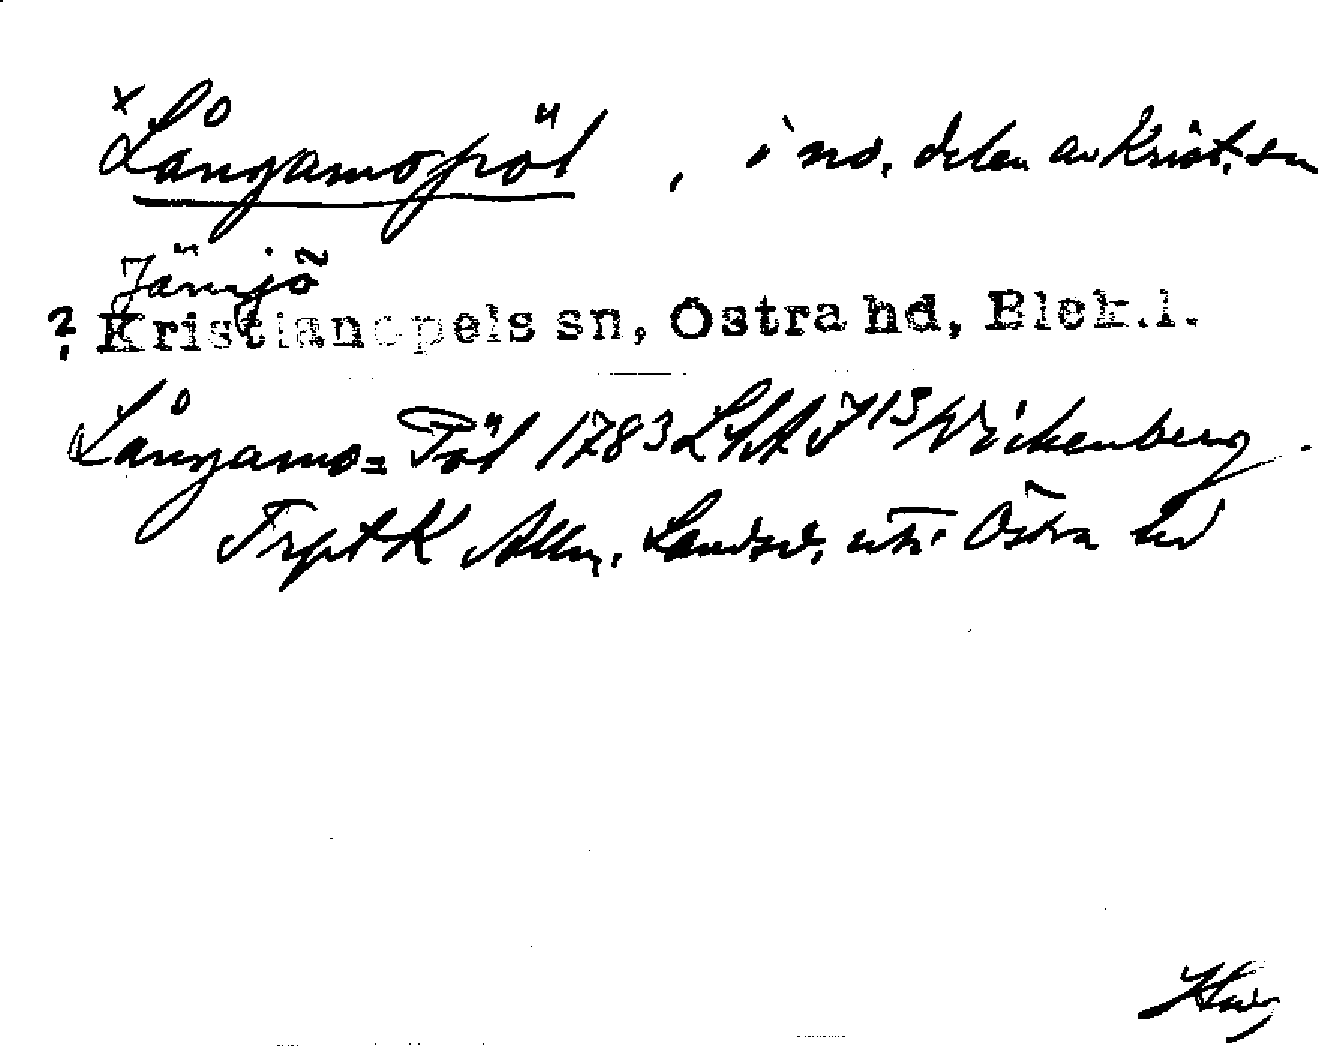 × Långamopöl, i nö. delen av Krist. sn
Jämjö
? Kristianopels sn, Östra hd, Blek.l.
Långamo= Pöl 1783 LSA J 13 Wickenberg.
Allm. Landsv. uti Östra hd